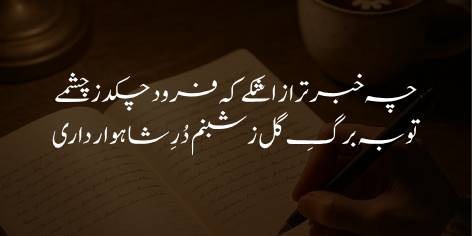 چہ خبر ترا ز اشکے کہ فرود چکد ز چشمے
تو بہ برگِ گل ز شبنم دُرِ شاہوار داری